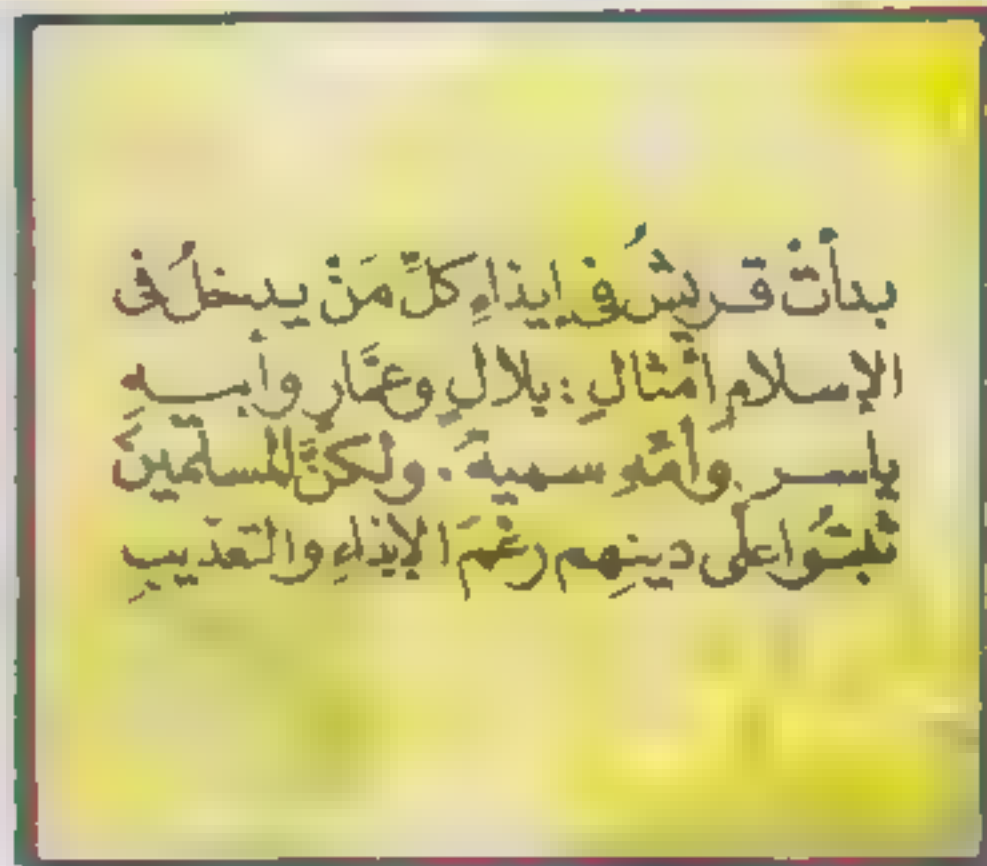 بدأتْ قريشُ فى إيذاءِ كلِّ مَنْ يدخلُ فى
الإسلامِ أمثالِ : بلالٍ وعمَّارٍ وأبيــهِ
ياســر .وأمِّهِ سميةَ . ولكنَّ المسلمينَ
ثبتُوا على دينِهم رغْمَ الإيذاءِ والتعذيبِ